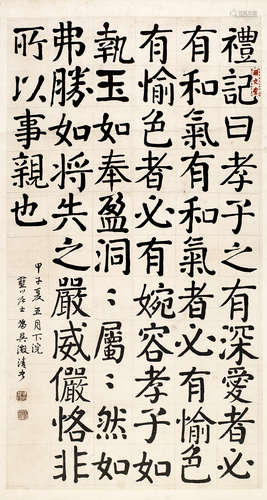 禮記曰孝子之有深愛者必
有和氣有和氣者必有愉色
有愉色者必有婉容孝子如
執玉如奉盈洞〻屬〻然如
弗勝如將失之嚴威儼恪非
所以事親也
甲子夏五月下浣